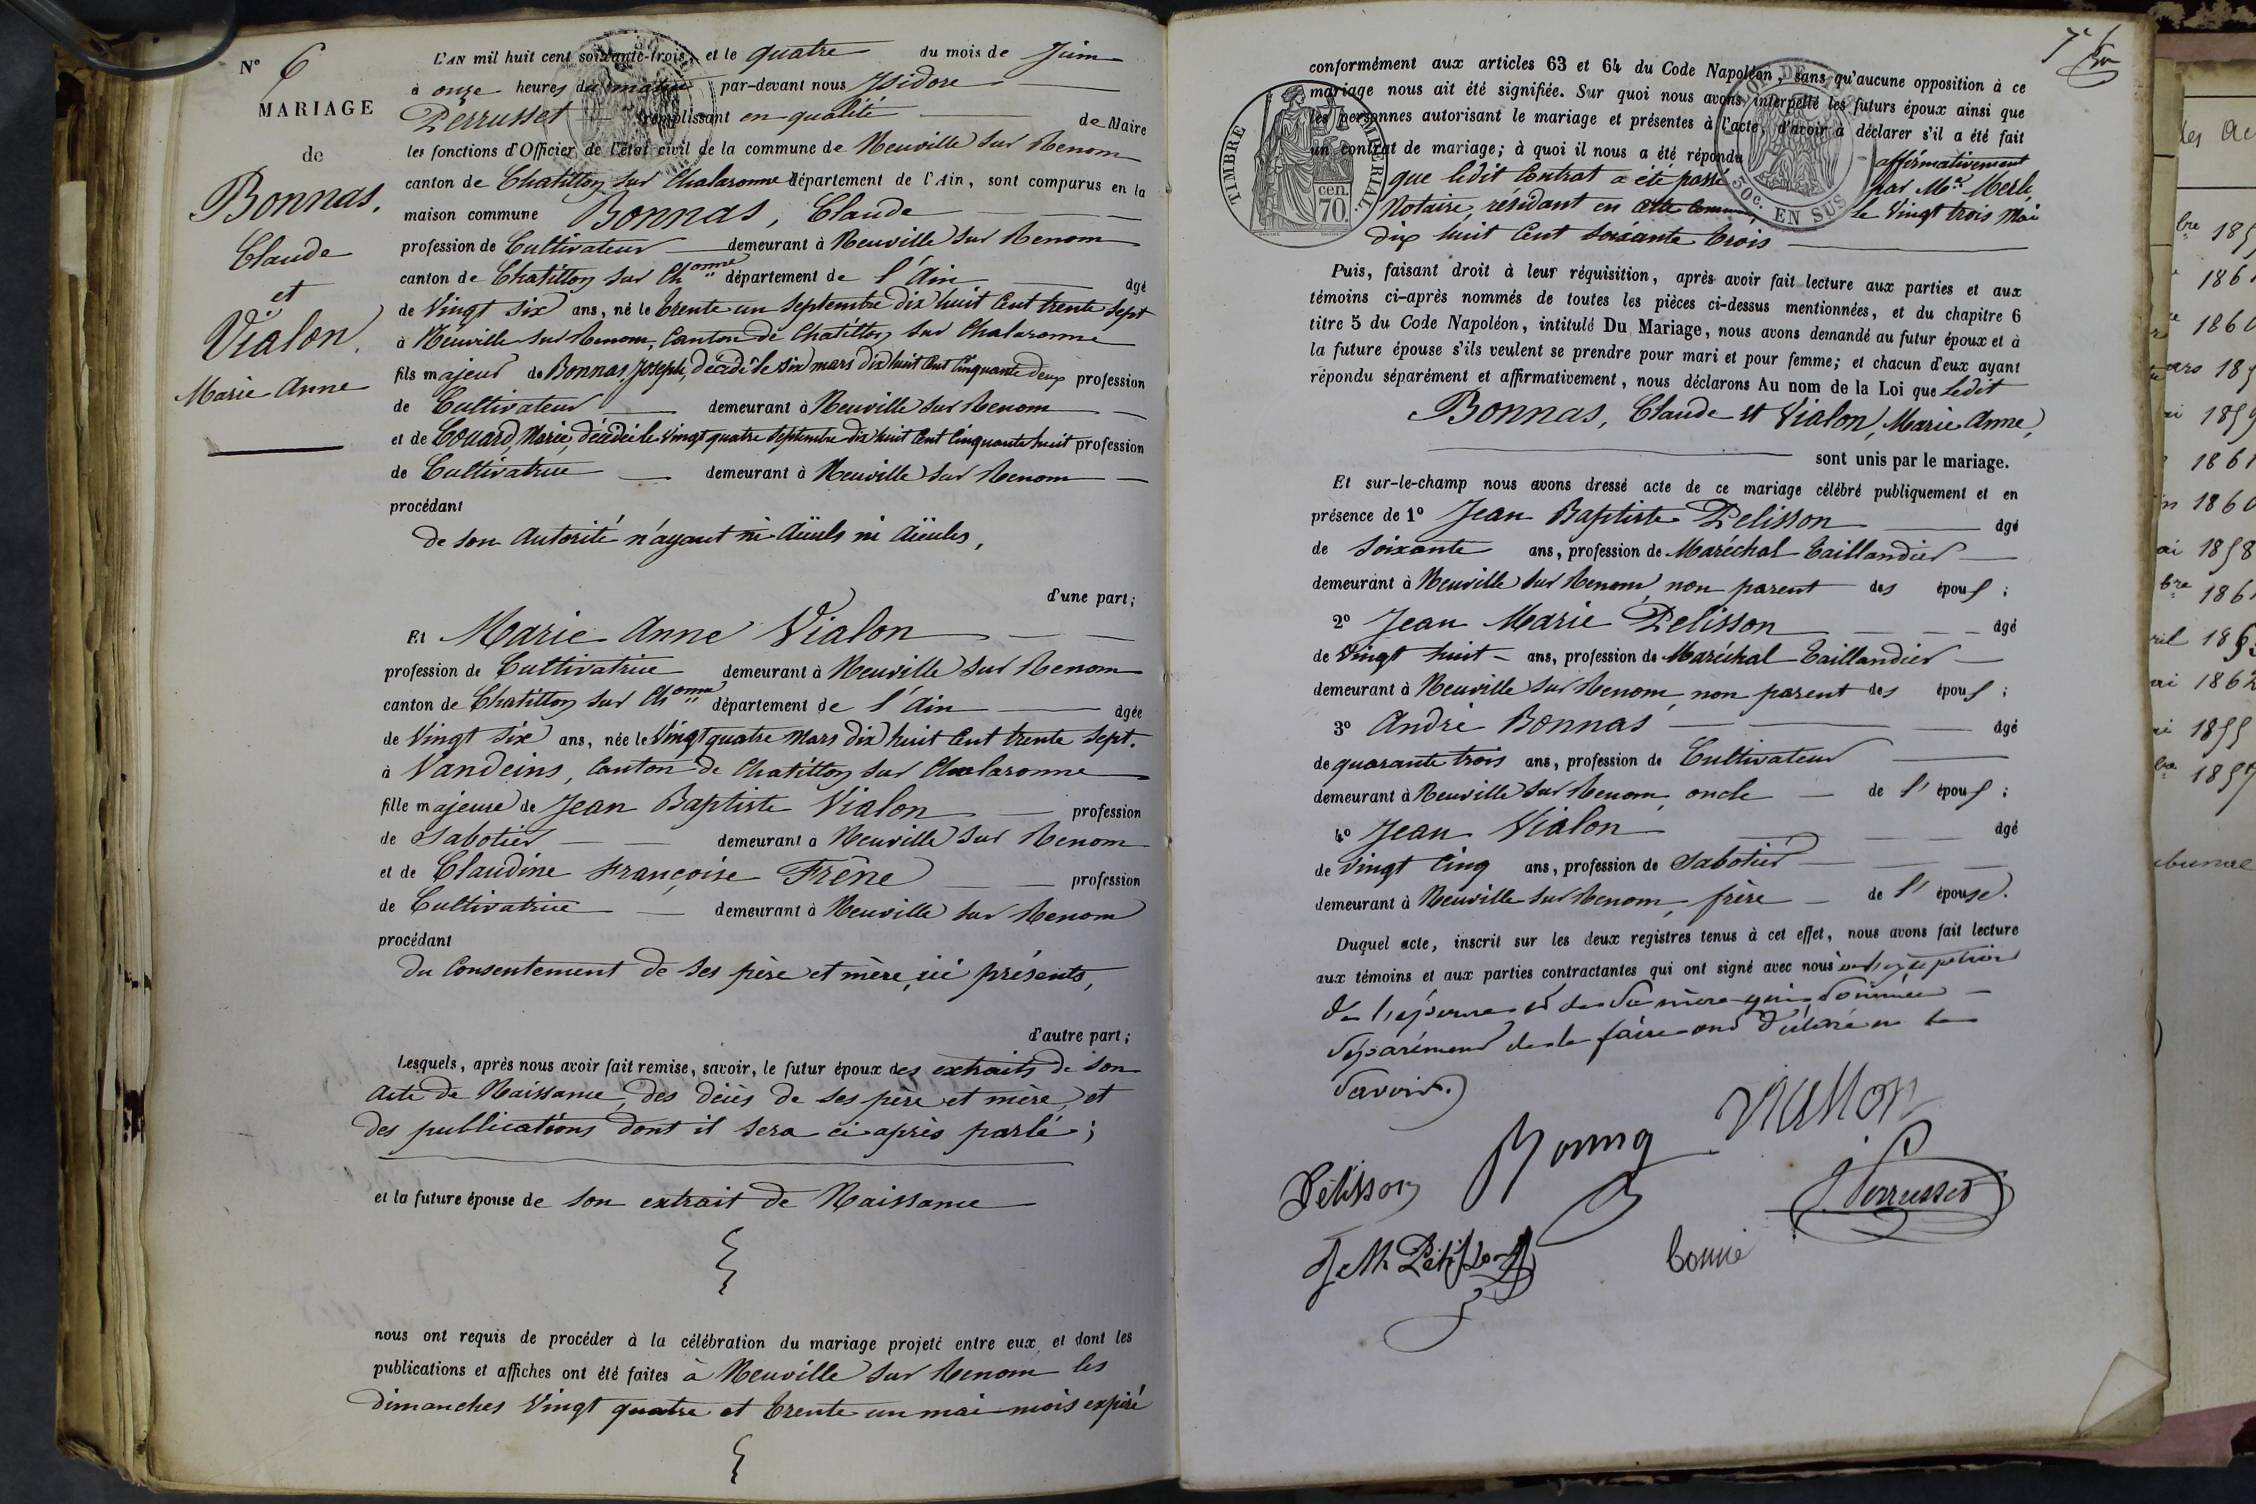 N° 6
MARIAGE
de
Bonnas,
Claude
et
Vialon,
Marie Anne
L'AN mil huit cent soixante-trois, et le quatre du mois de Juin
à onze heures du matin par-devant nous Isidore
Perrusset remplissant en qualité de Maire
les fonctions d'Officier de l'état civil de la commune de Neuville sur Renom
canton de Chatillon sur Chalaronne département de l'Ain, sont comparus en la
maison commune Bonnas, Claude
profession de Cultivateur demeurant à Neuville sur Renom
canton de Chatillon sur Ch onne département de l'Ain âgé
de Vingt six ans, né le trente un septembre dix huit Cent trente sept
à Neuville sur Renom, Canton de Chatillon sur Chalaronne
fils majeur de Bonnas, Joseph, décédé le six mars dix huit Cent Cinquante deux profession
de Cultivateur demeurant à Neuville sur Renom
et de Couard, Marie, décédée le vingt quatre septembre dix huit Cent Cinquante huit profession
de Cultivatrice demeurant à Neuville sur Renom
procédant
de son Autorité n'ayant ni Aïeuls ni Aïeules,
d'une part;
Et Marie Anne Vialon
profession de Cultivatrice demeurant à Neuville sur Renom
canton de Chatillon sur Ch onne département de l'Ain âgée
de Vingt six ans, née le Vingt quatre Mars dix huit Cent trente sept.
à Vandeins, Canton de Chatillon sur Chalaronne
fille majeure de Jean Baptiste Vialon profession
de Sabotier demeurant à Neuville sur Renom
et de Claudine Françoise Frêne profession
de Cultivatrice demeurant à Neuville sur Renom
procédant
du Consentement de ses père et mère, ici présents,
d'autre part;
Lesquels, après nous avoir fait remise, savoir, le futur époux des extraits de son
Acte de Naissance, des décès de ses père et mère, et
des publications dont il sera ci après parlé;
et la future épouse de son extrait de Naissance
nous ont requis de procéder à la célébration du mariage projeté entre eux, et dont les
publications et affiches ont été faites à Neuville sur Renom les
dimanches Vingt quatre et trente un mai mois expiré
conformément aux articles 63 et 64 du Code Napoléon, sans qu'aucune opposition à ce
mariage nous ait été signifiée. Sur quoi nous avons interpellé les futurs époux ainsi que
les personnes autorisant le mariage et présentes à l'acte, d'avoir à déclarer s'il a été fait
un contrat de mariage; à quoi il nous a été répondu affirmativement
que ledit Contrat a été passé par Me Merle,
Notaire, résidant en cette Commune, le Vingt trois Mai
dix huit Cent soixante trois
TIMBRE IMPERIAL
70 cen.
50c. EN SUS
Puis, faisant droit à leur réquisition, après avoir fait lecture aux parties et aux
témoins ci-après nommés de toutes les pièces ci-dessus mentionnées, et du chapitre 6
titre 5 du Code Napoléon, intitulé Du Mariage, nous avons demandé au futur époux et à
la future épouse s'ils veulent se prendre pour mari et pour femme; et chacun d'eux ayant
répondu séparément et affirmativement, nous déclarons Au nom de la Loi que Ledit
Bonnas, Claude et Vialon, Marie Anne,
sont unis par le mariage.
Et sur-le-champ nous avons dressé acte de ce mariage célébré publiquement et en
présence de 1° Jean Baptiste Pelisson âgé
de soixante ans, profession de Maréchal Taillandier
demeurant à Neuville sur Renom, non parent des épouf;
2° Jean Marie Pelisson âgé
de Vingt huit ans, profession de Maréchal Taillandier
demeurant à Neuville sur Renom, non parent des épouf;
3° André Bonnas âgé
de quarante trois ans, profession de Cultivateur
demeurant à Neuville sur Renom, oncle de l'épouf;
4° Jean Vialon âgé
de Vingt Cinq ans, profession de Sabotier
demeurant à Neuville sur Renom, frère de l'épouse.
Duquel acte, inscrit sur les deux registres tenus à cet effet, nous avons fait lecture
aux témoins et aux parties contractantes qui ont signé avec nous
de l'épouse et de sa mère qui
séparément de le faire ont déclaré ne le
savoir.
Viallon
Pélisson
J. Perrusset
J M Pelisson